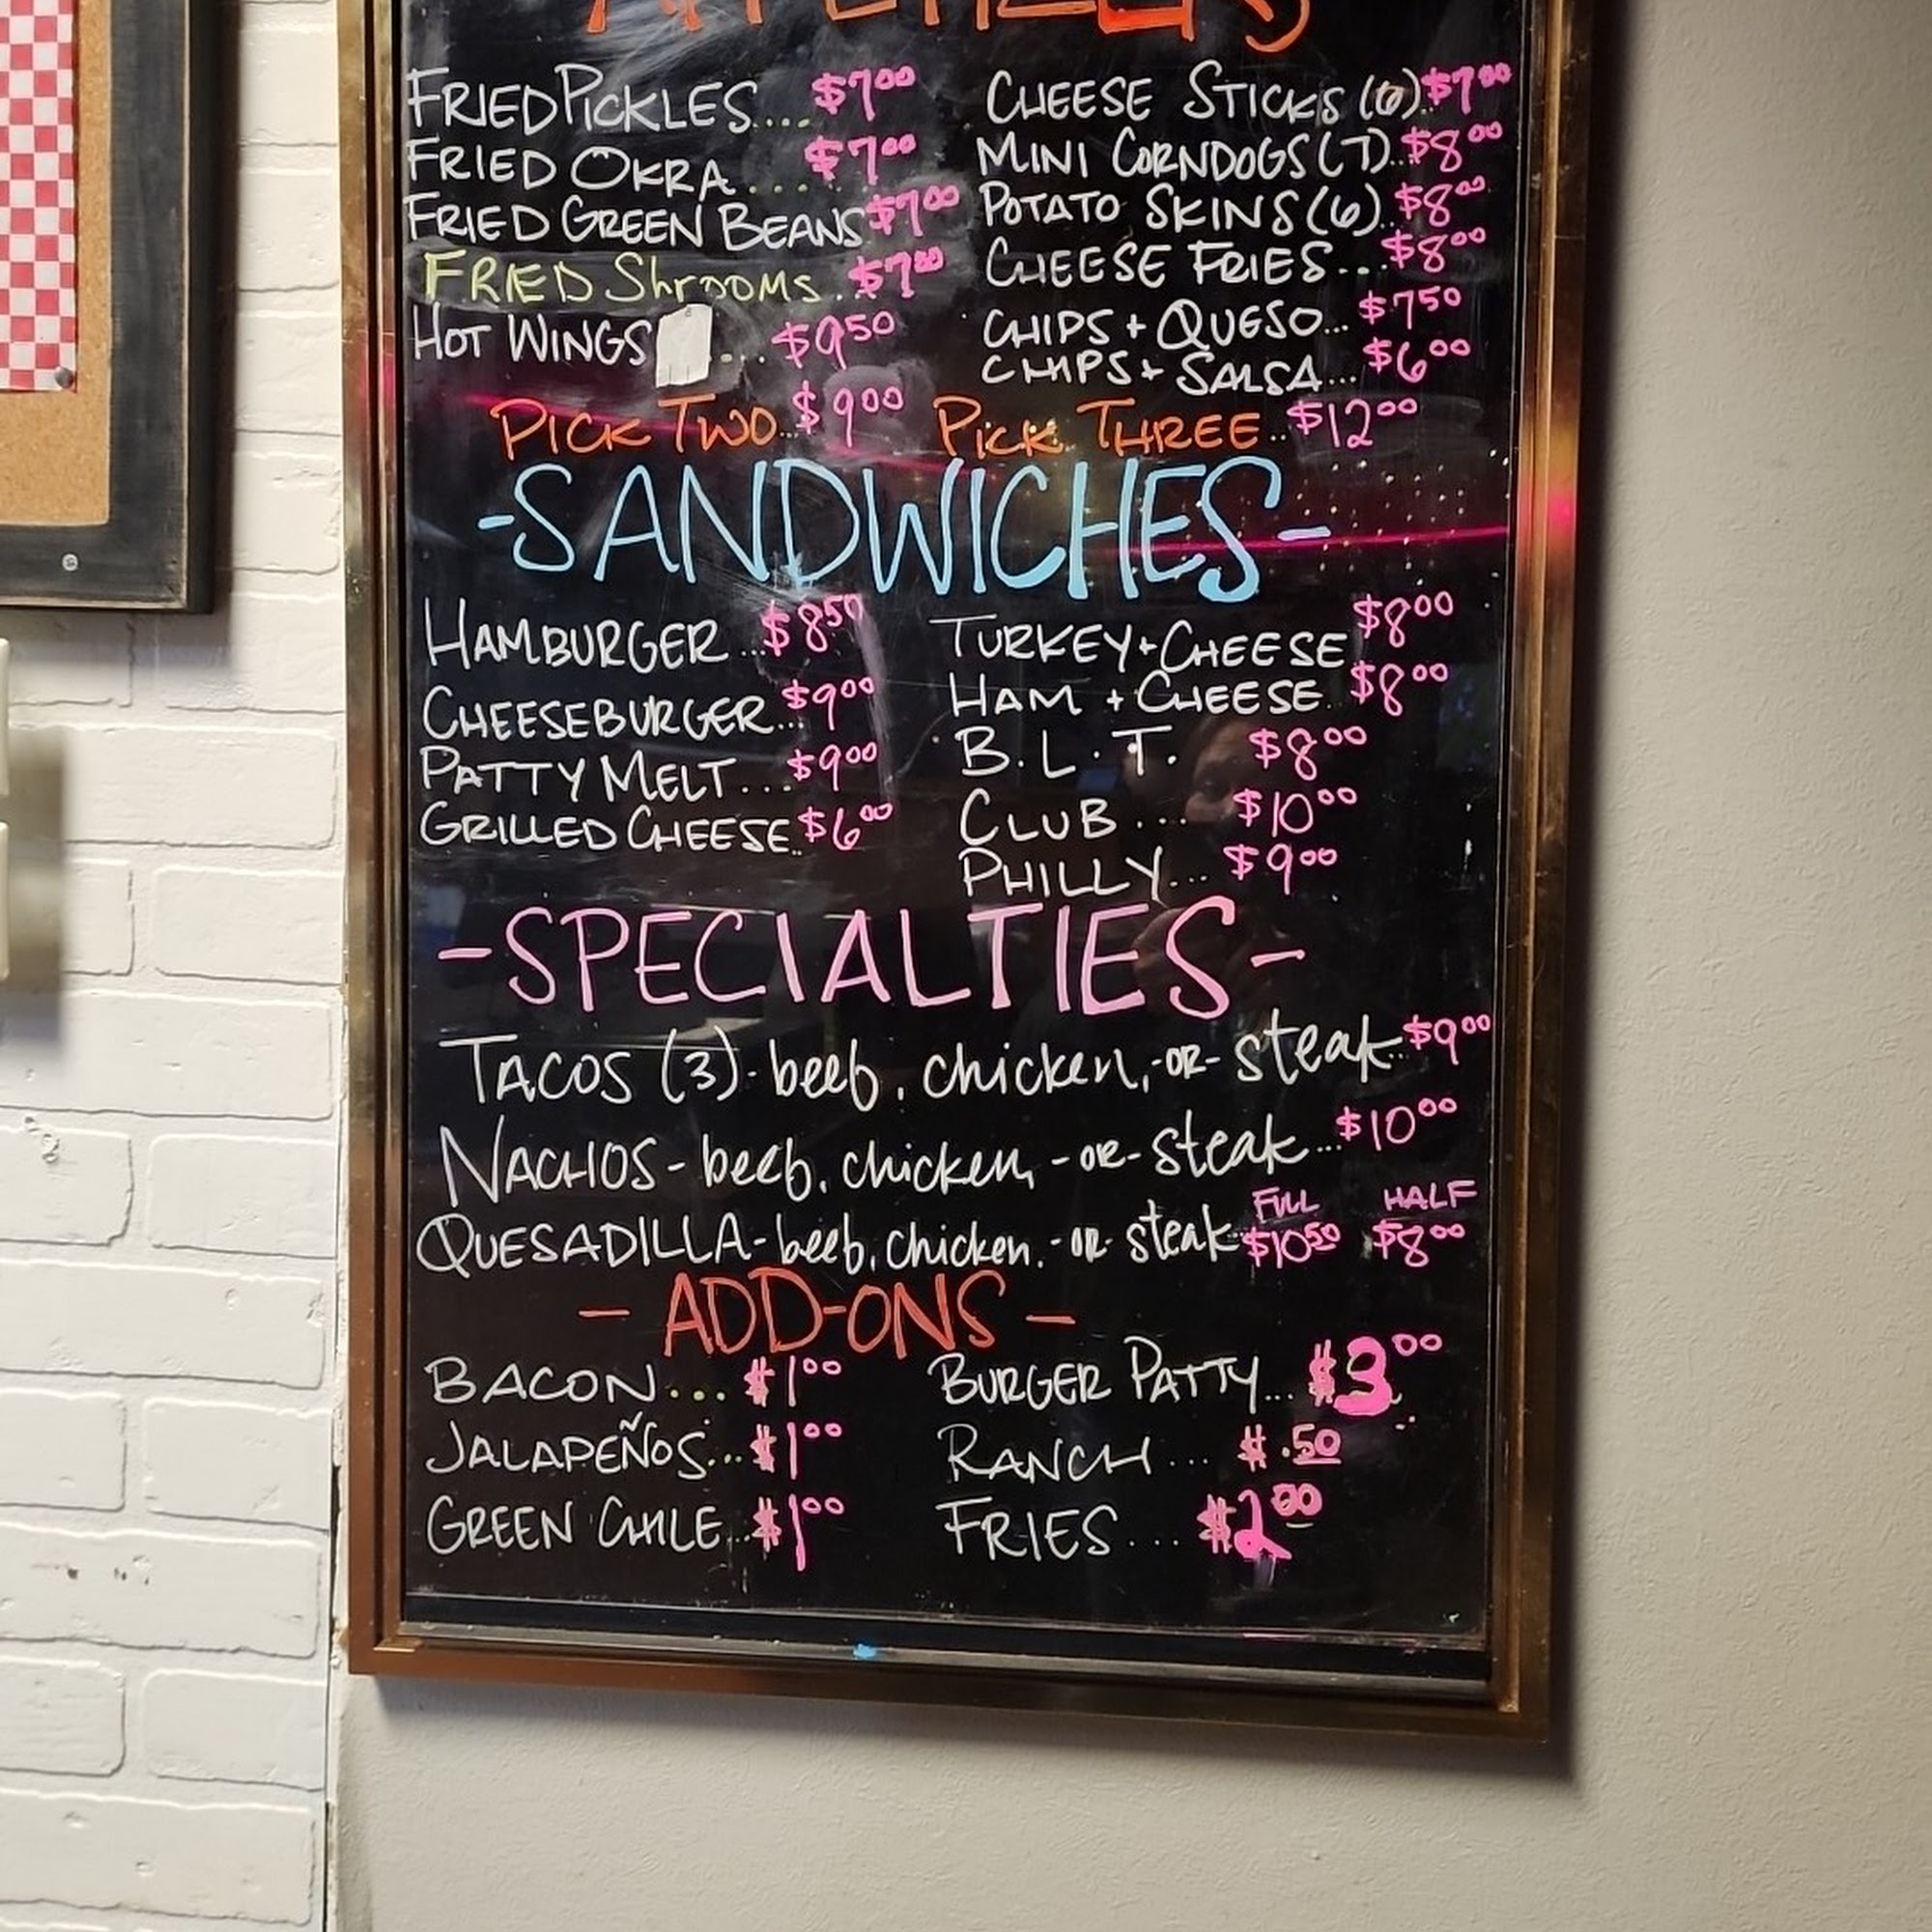 APPETIZERS
FRIED PICKLES.... $7.00
FRIED OKRA..... $7.00
FRIED GREEN BEANS $7.00
FRIED Shrooms.. $7.00
HOT WINGS ... $9.50
CHEESE STICKS (6).. $7.00
MINI CORNDOGS (7).. $8.00
POTATO SKINS (6).. $8.00
CHEESE FRIES... $8.00
CHIPS + QUESO... $7.50
CHIPS + SALSA... $6.00
PICK TWO.. $9.00 PICK THREE.. $12.00
-SANDWICHES-
HAMBURGER... $8.50
CHEESEBURGER... $9.00
PATTY MELT... $9.00
GRILLED CHEESE.. $6.00
TURKEY + CHEESE. $8.00
HAM + CHEESE. $8.00
B.L.T. $8.00
CLUB... $10.00
PHILLY... $9.00
-SPECIALTIES-
TACOS (3)- beef, chicken, -OR- steak.. $9.00
NACHOS - beef, chicken, -OR- steak... $10.00
FULL HALF
QUESADILLA- beef, chicken, -OR- steak $10.50 $8.00
- ADD-ONS -
BACON... $1.00
JALAPEÑOS... $1.00
GREEN CHILE.. $1.00
BURGER PATTY... $3.00
RANCH... $.50
FRIES... $2.00